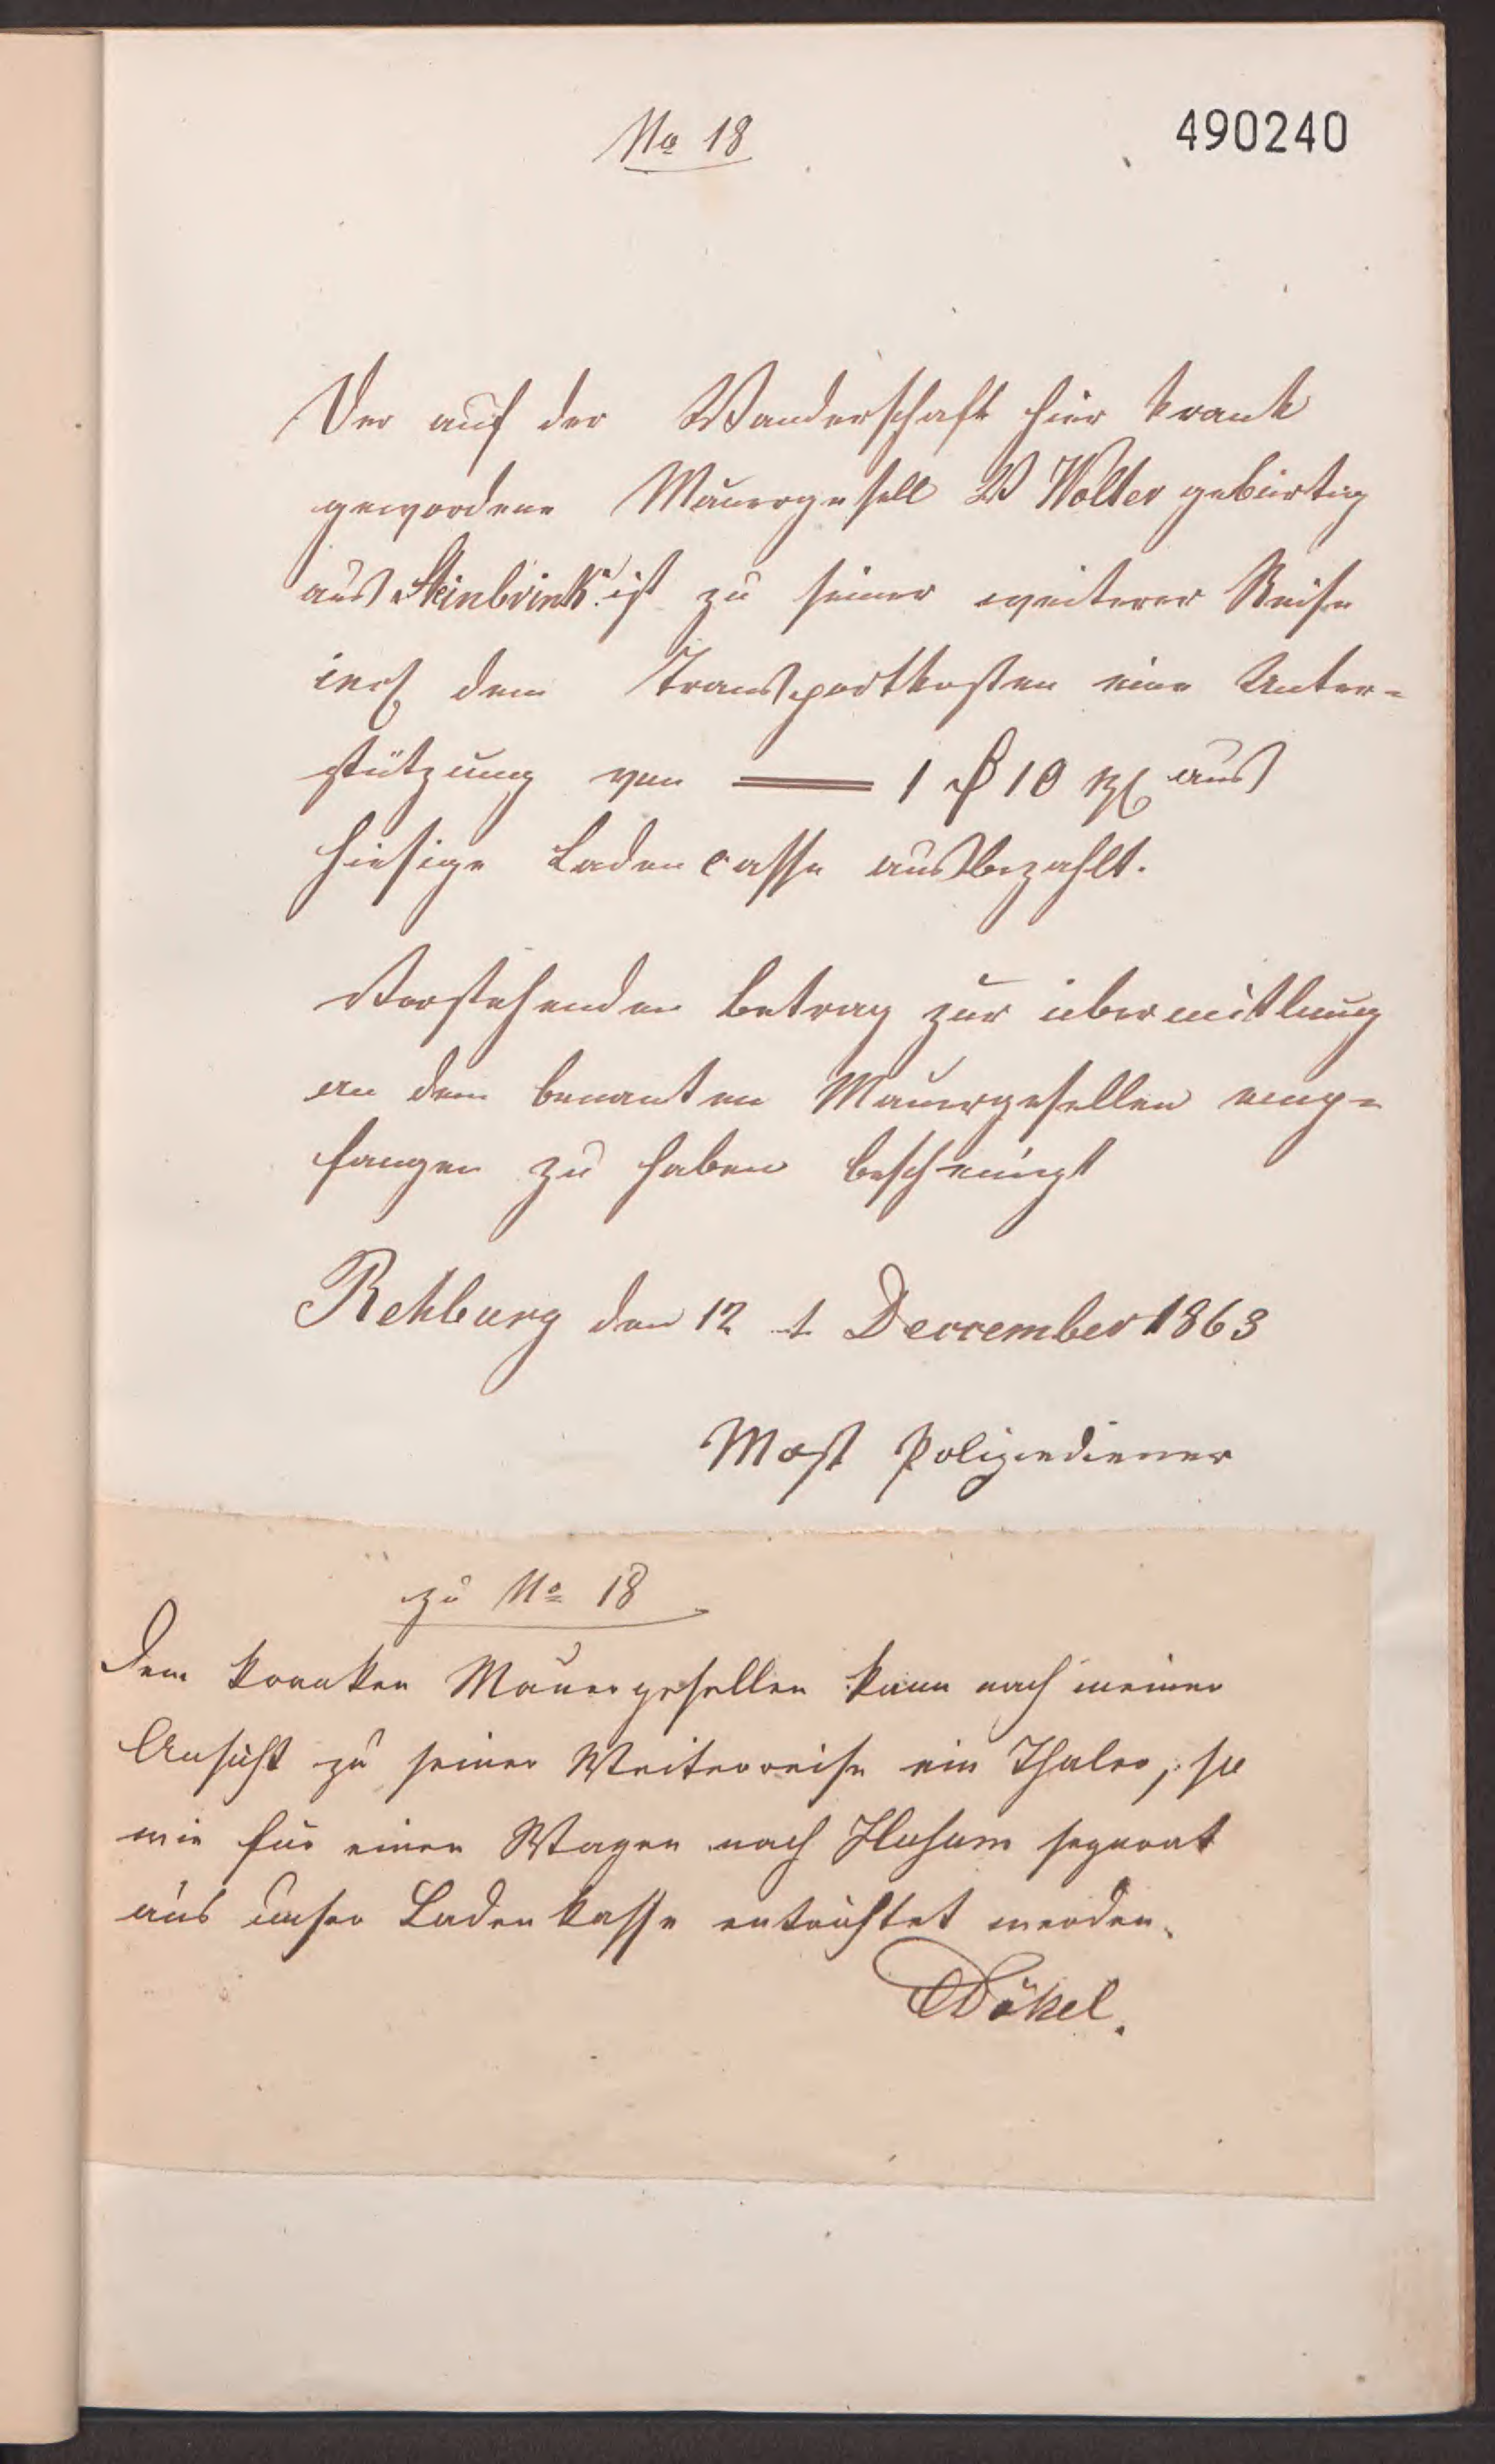 No 18
490240
Der auf der Wanderschaft hier krank
gewordene Mauergesell W Wolter gebürtig
aus "Steinbrink" ist zu seiner weiterer Reise
incl den Transportkosten eine Unter-
stützung von 1 ₰ 10 gl aus
hiesige Ladencasse ausbezahlt.
Vorstehenden Betrag zur übermitlung
an den benanten Mauergesellen emp-
fangen zu haben bescheinigt
Rehburg den 12 t Dercember 1863
Most Polizeidiener
zu No 18
Dem kranken Mauergesellen kann nach meiner
Ansicht zu seiner Weiterreise ein Thaler, so
wie für einen Wagen nach Husum separat
aus unser Ladenkasse entrichtet werden.
Dökel.